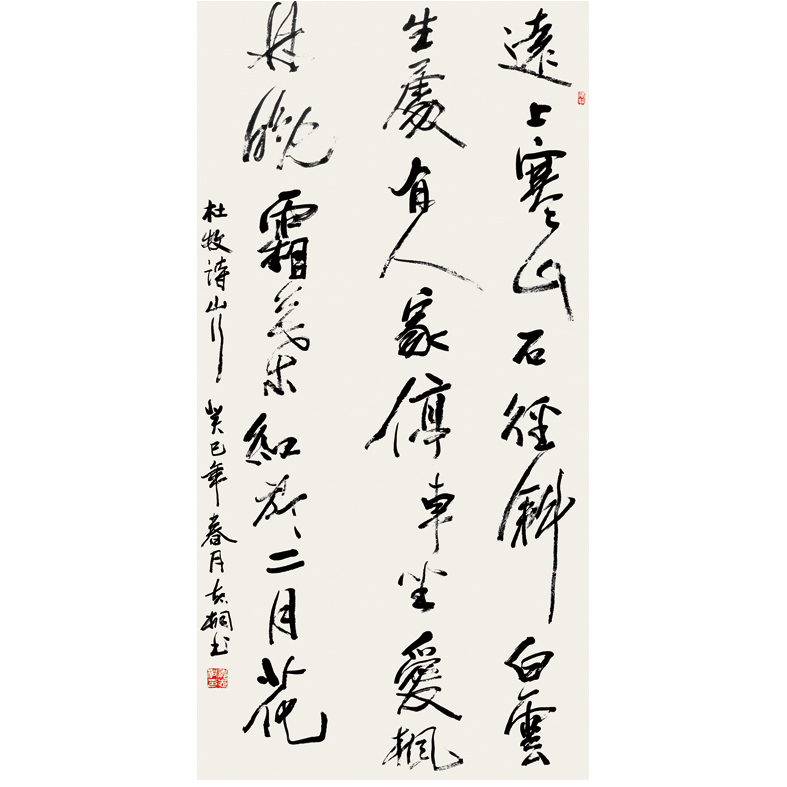 遠上寒山石徑斜白雲
生處有人家停車坐愛楓
林晚霜葉紅於二月花
杜牧詩山行 癸巳年春月志桐书